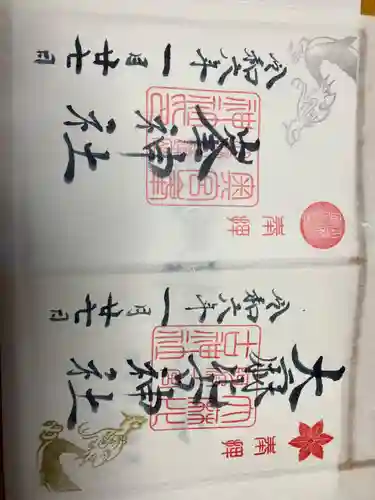 奉拝
大麻比古神社
令和六年一月廿七日
奉拝
峯神社
令和六年一月廿七日